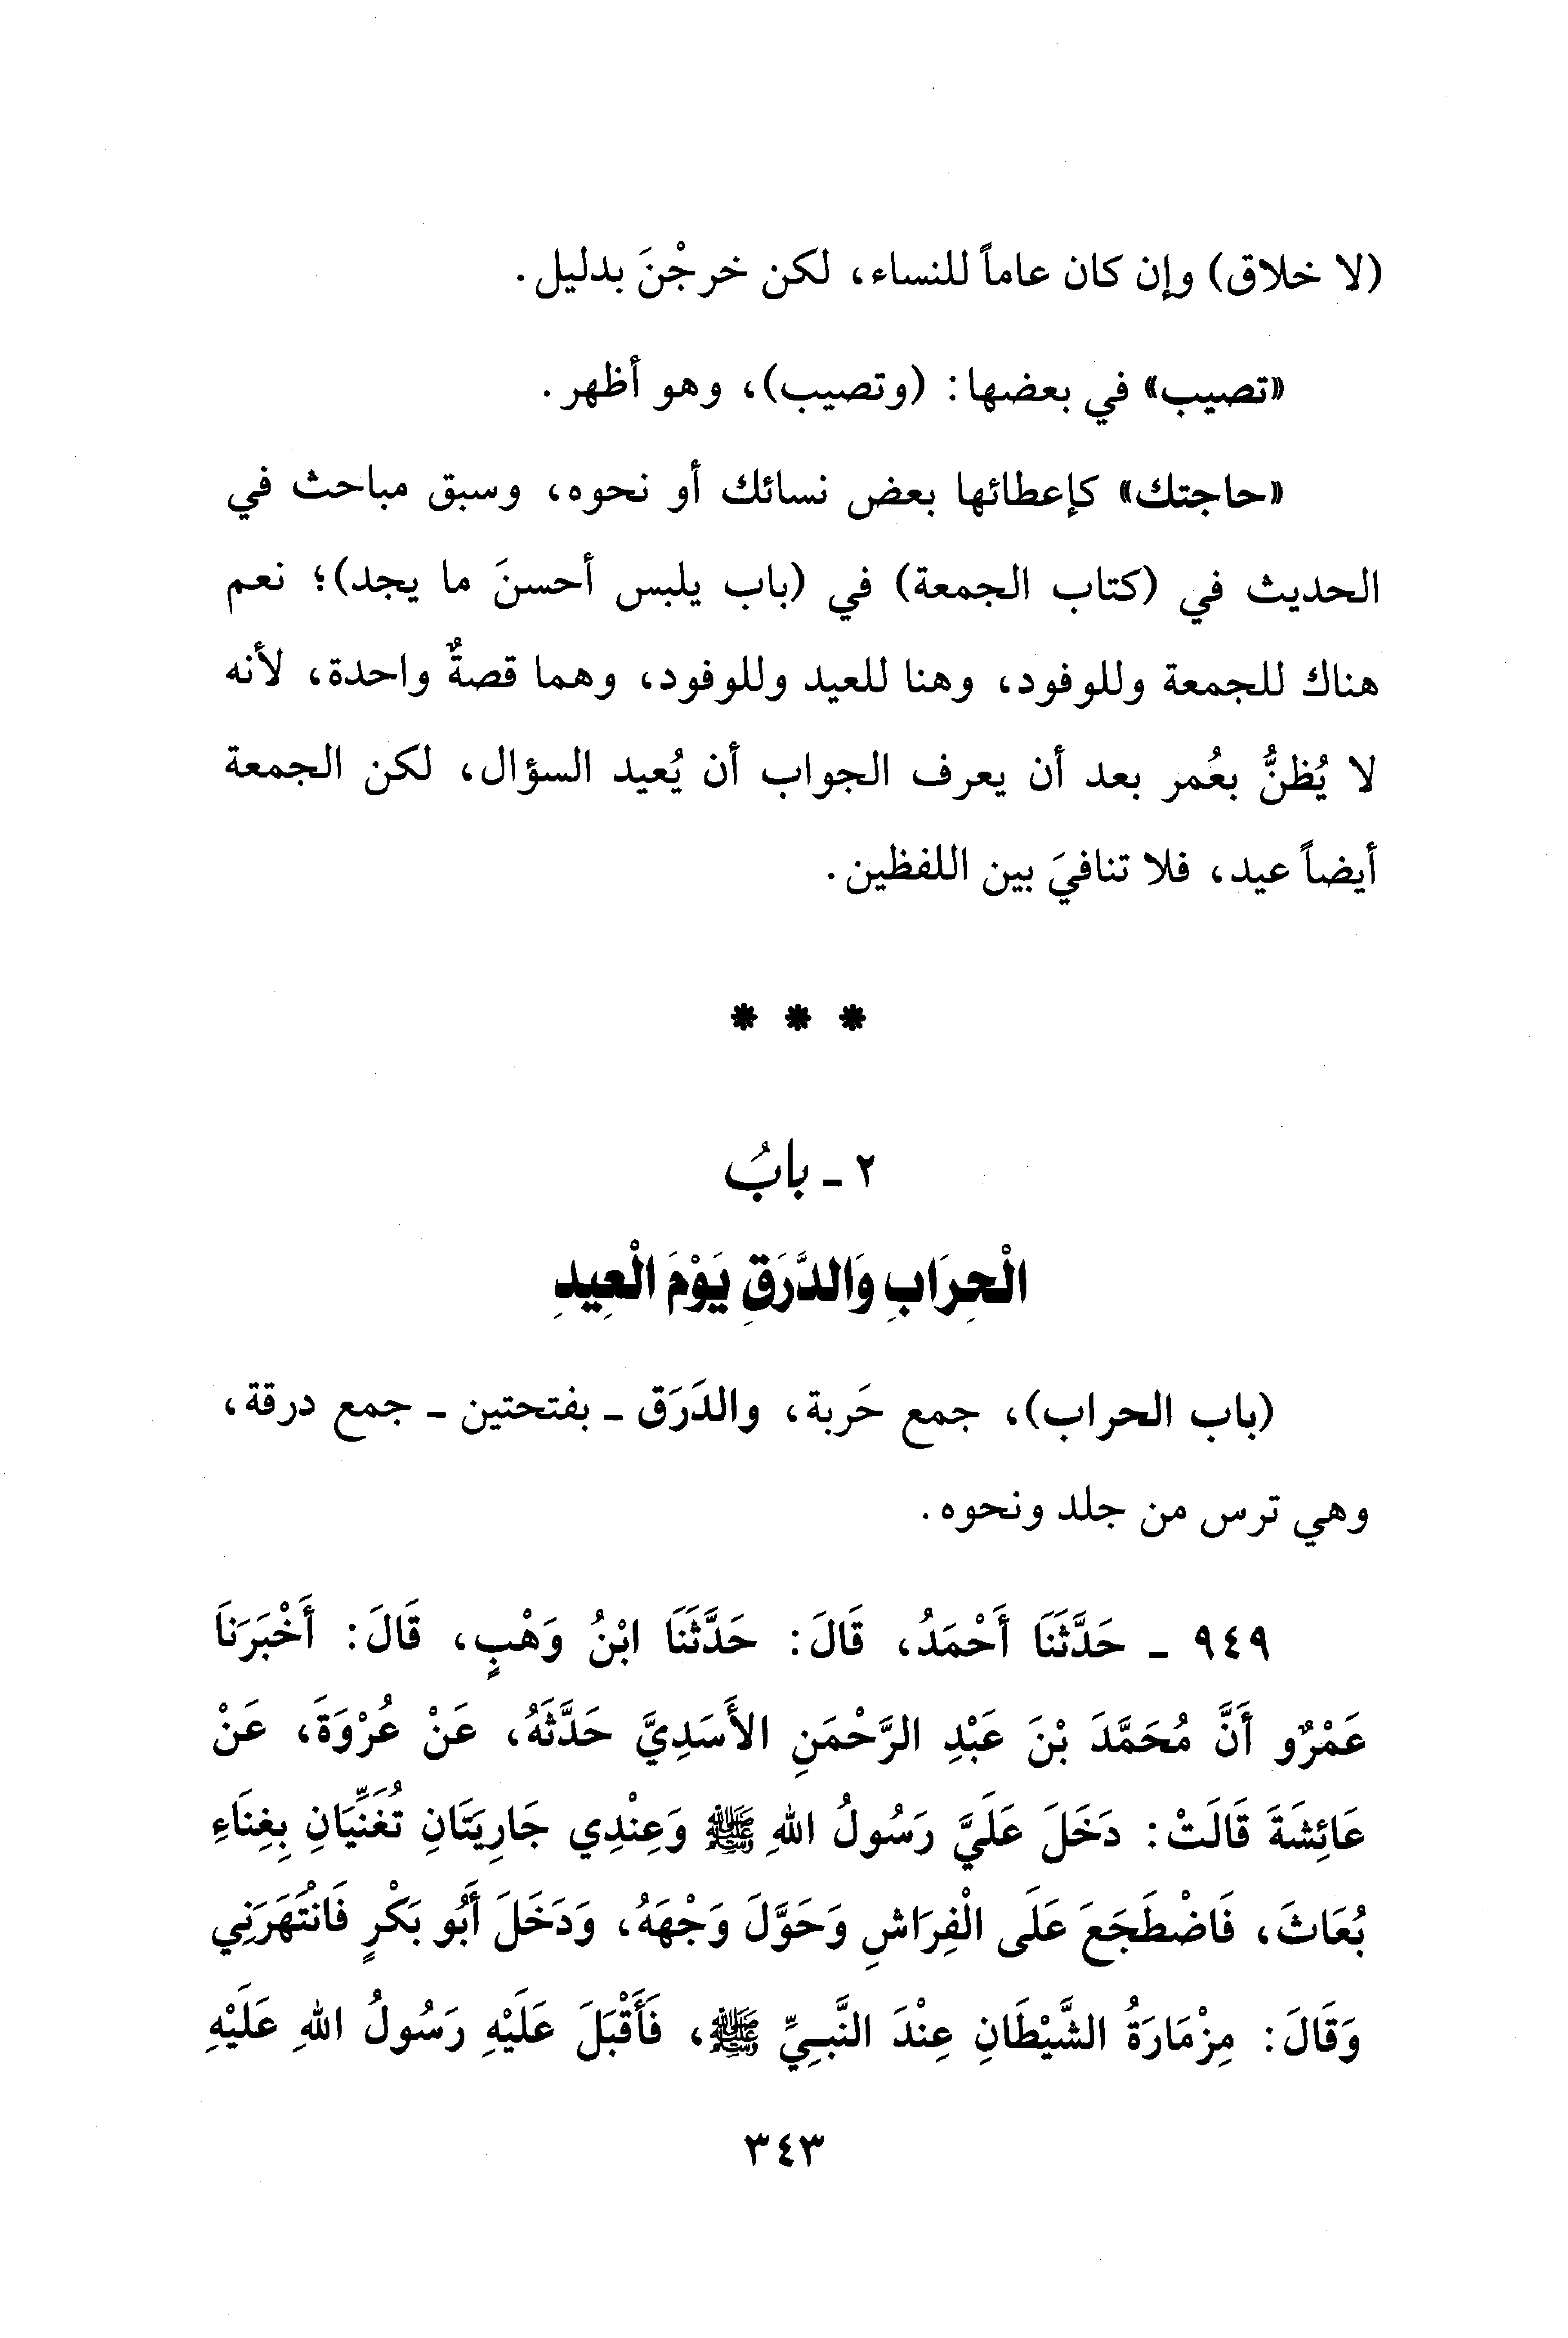 (لا خلاق) وإن كان عاماً للنساء، لكن خرجْنَ بدليل.
«تصيب» في بعضها: (وتصيب)، وهو أظهر.
«حاجتك» كإعطائها بعض نسائك أو نحوه، وسبق مباحث في
الحديث في (كتاب الجمعة) في (باب يلبس أحسنَ ما يجد)؛ نعم
هناك للجمعة وللوفود، وهنا للعيد وللوفود، وهما قصةٌ واحدة، لأنه
لا يُظنُّ بعُمر بعد أن يعرف الجواب أن يُعيد السؤال، لكن الجمعة
أيضاً عيد، فلا تنافيَ بين اللفظين.
* * *
٢ ـ بابُ
الْحِرَابِ وَالدَّرَقِ يَوْمَ الْعِيدِ
(باب الحراب)، جمع حَربة، والدَرَق ـ بفتحتين ـ جمع درقة،
وهي ترس من جلد ونحوه.
٩٤٩ ـ حَدَّثَنَا أَحْمَدُ، قَالَ: حَدَّثَنَا ابْنُ وَهْبٍ، قَالَ: أَخْبَرَنَا
عَمْرٌو أَنَّ مُحَمَّدَ بْنَ عَبْدِ الرَّحْمَنِ الأَسَدِيَّ حَدَّثَهُ، عَنْ عُرْوَةَ، عَنْ
عَائِشَةَ قَالَتْ: دَخَلَ عَلَيَّ رَسُولُ اللهِ ﷺ وَعِنْدِي جَارِيَتَانِ تُغَنِّيَانِ بِغِنَاءِ
بُعَاثَ، فَاضْطَجَعَ عَلَى الْفِرَاشِ وَحَوَّلَ وَجْهَهُ، وَدَخَلَ أَبُو بَكْرٍ فَانْتَهَرَنِي
وَقَالَ: مِزْمَارَةُ الشَّيْطَانِ عِنْدَ النَّبِيِّ ﷺ، فَأَقْبَلَ عَلَيْهِ رَسُولُ اللهِ عَلَيْهِ
٣٤٣